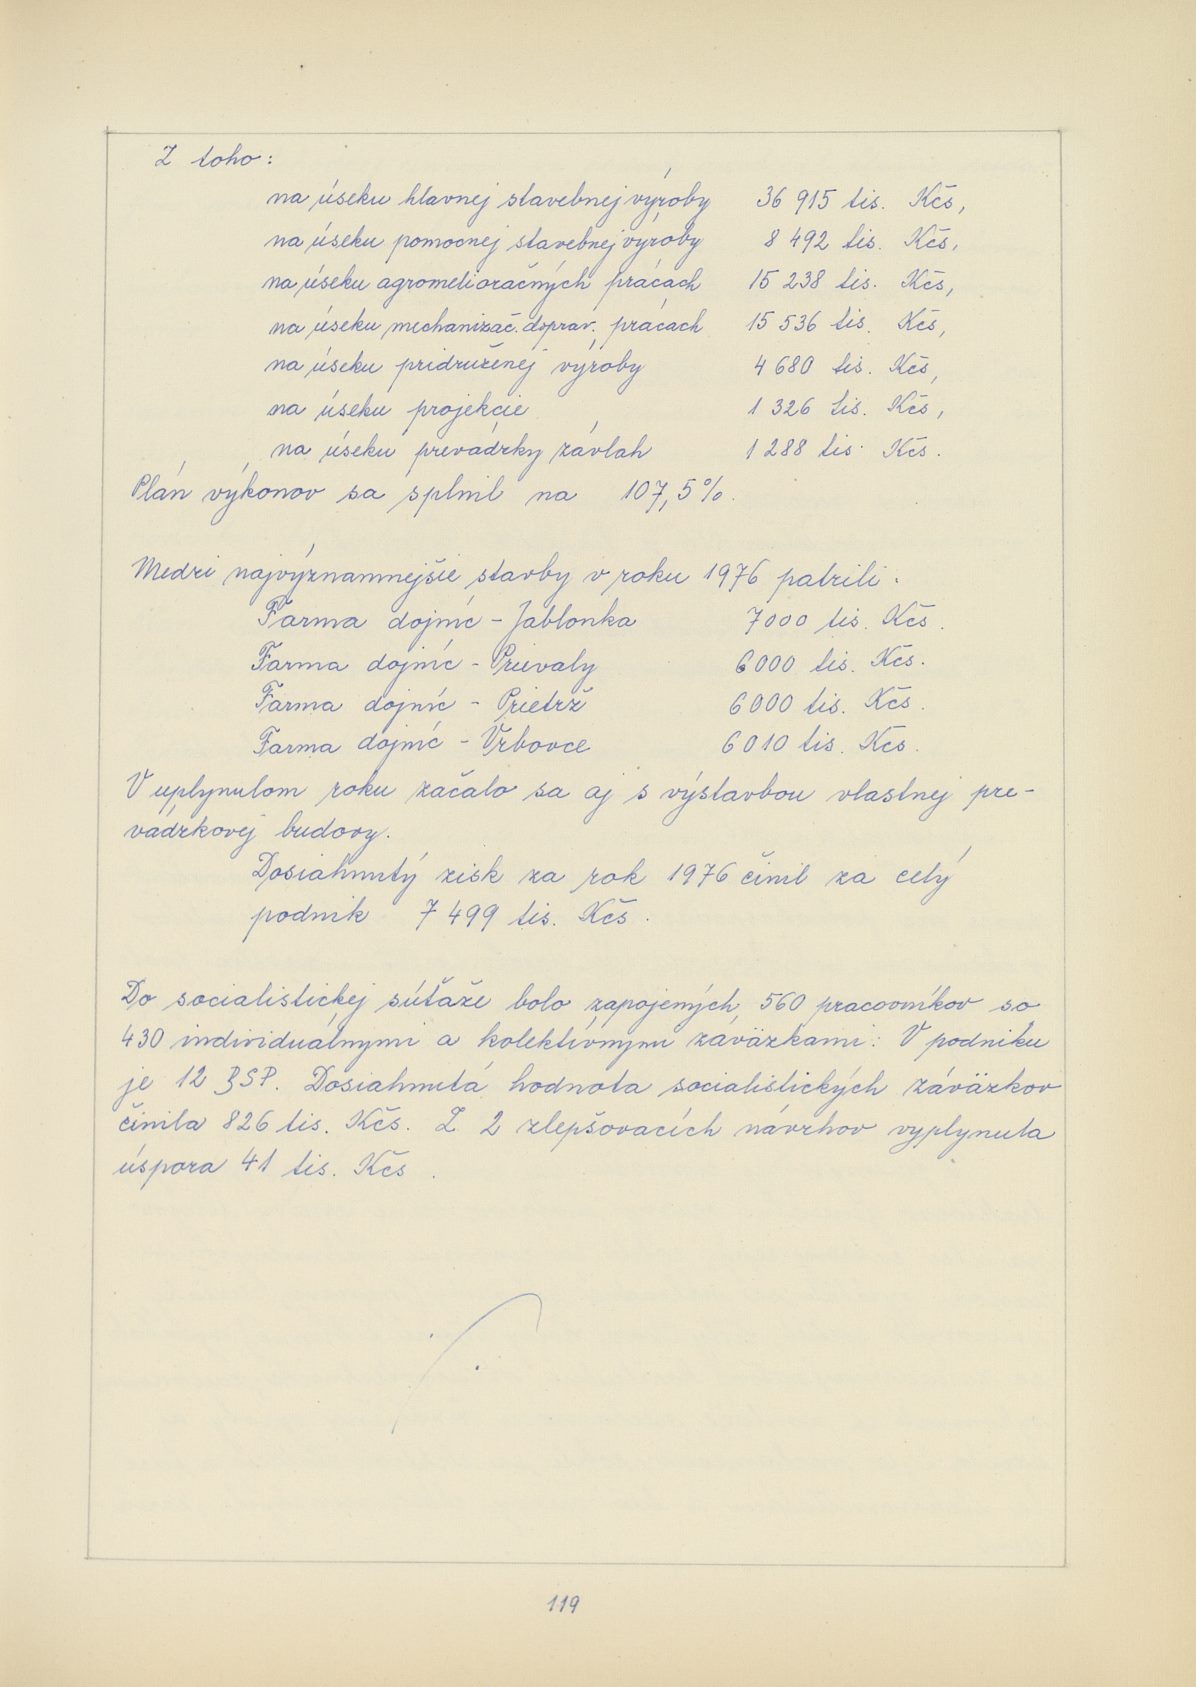 Z toho:
na úseku hlavnej stavebnej výroby 36 915 tis. Kčs,
na úseku pomocnej stavebnej výroby 8 492 tis. Kčs,
na úseku agromelioračných prácach 15 238 tis. Kčs,
na úseku mechanizač. doprav. prácach 15 536 tis. Kčs,
na úseku pridruženej výroby 4 680 tis. Kčs,
na úseku projekcie 1 326 tis. Kčs,
na úseku prevádzky závlah 1 288 tis. Kčs.
Plán výkonov sa splnil na 107,5 %.
Medzi najvýznamnejšie stavby v roku 1976 patrili.
Farma dojníc - Jablonka 7000 tis. Kčs.
Farma dojníc - Prievaly 6000 tis. Kčs.
Farma dojníc - Prietrž 6000 tis. Kčs.
Farma dojníc - Vrbovce 6010 tis. Kčs.
V uplynulom roku začalo sa aj s výstavbou vlastnej pre-
vádzkovej budovy.
Dosiahnutý zisk za rok 1976 činil za celý
podnik 7 499 tis. Kčs.
Do socialistickej súťaže bolo zapojených 560 pracovníkov so
430 individuálnymi a kolektívnymi záväzkami. V podniku
je 12 BSP. Dosiahnutá hodnota socialistických záväzkov
činila 826 tis. Kčs. Z 2 zlepšovacích návrhov vyplynula
úspora 41 tis. Kčs.
119